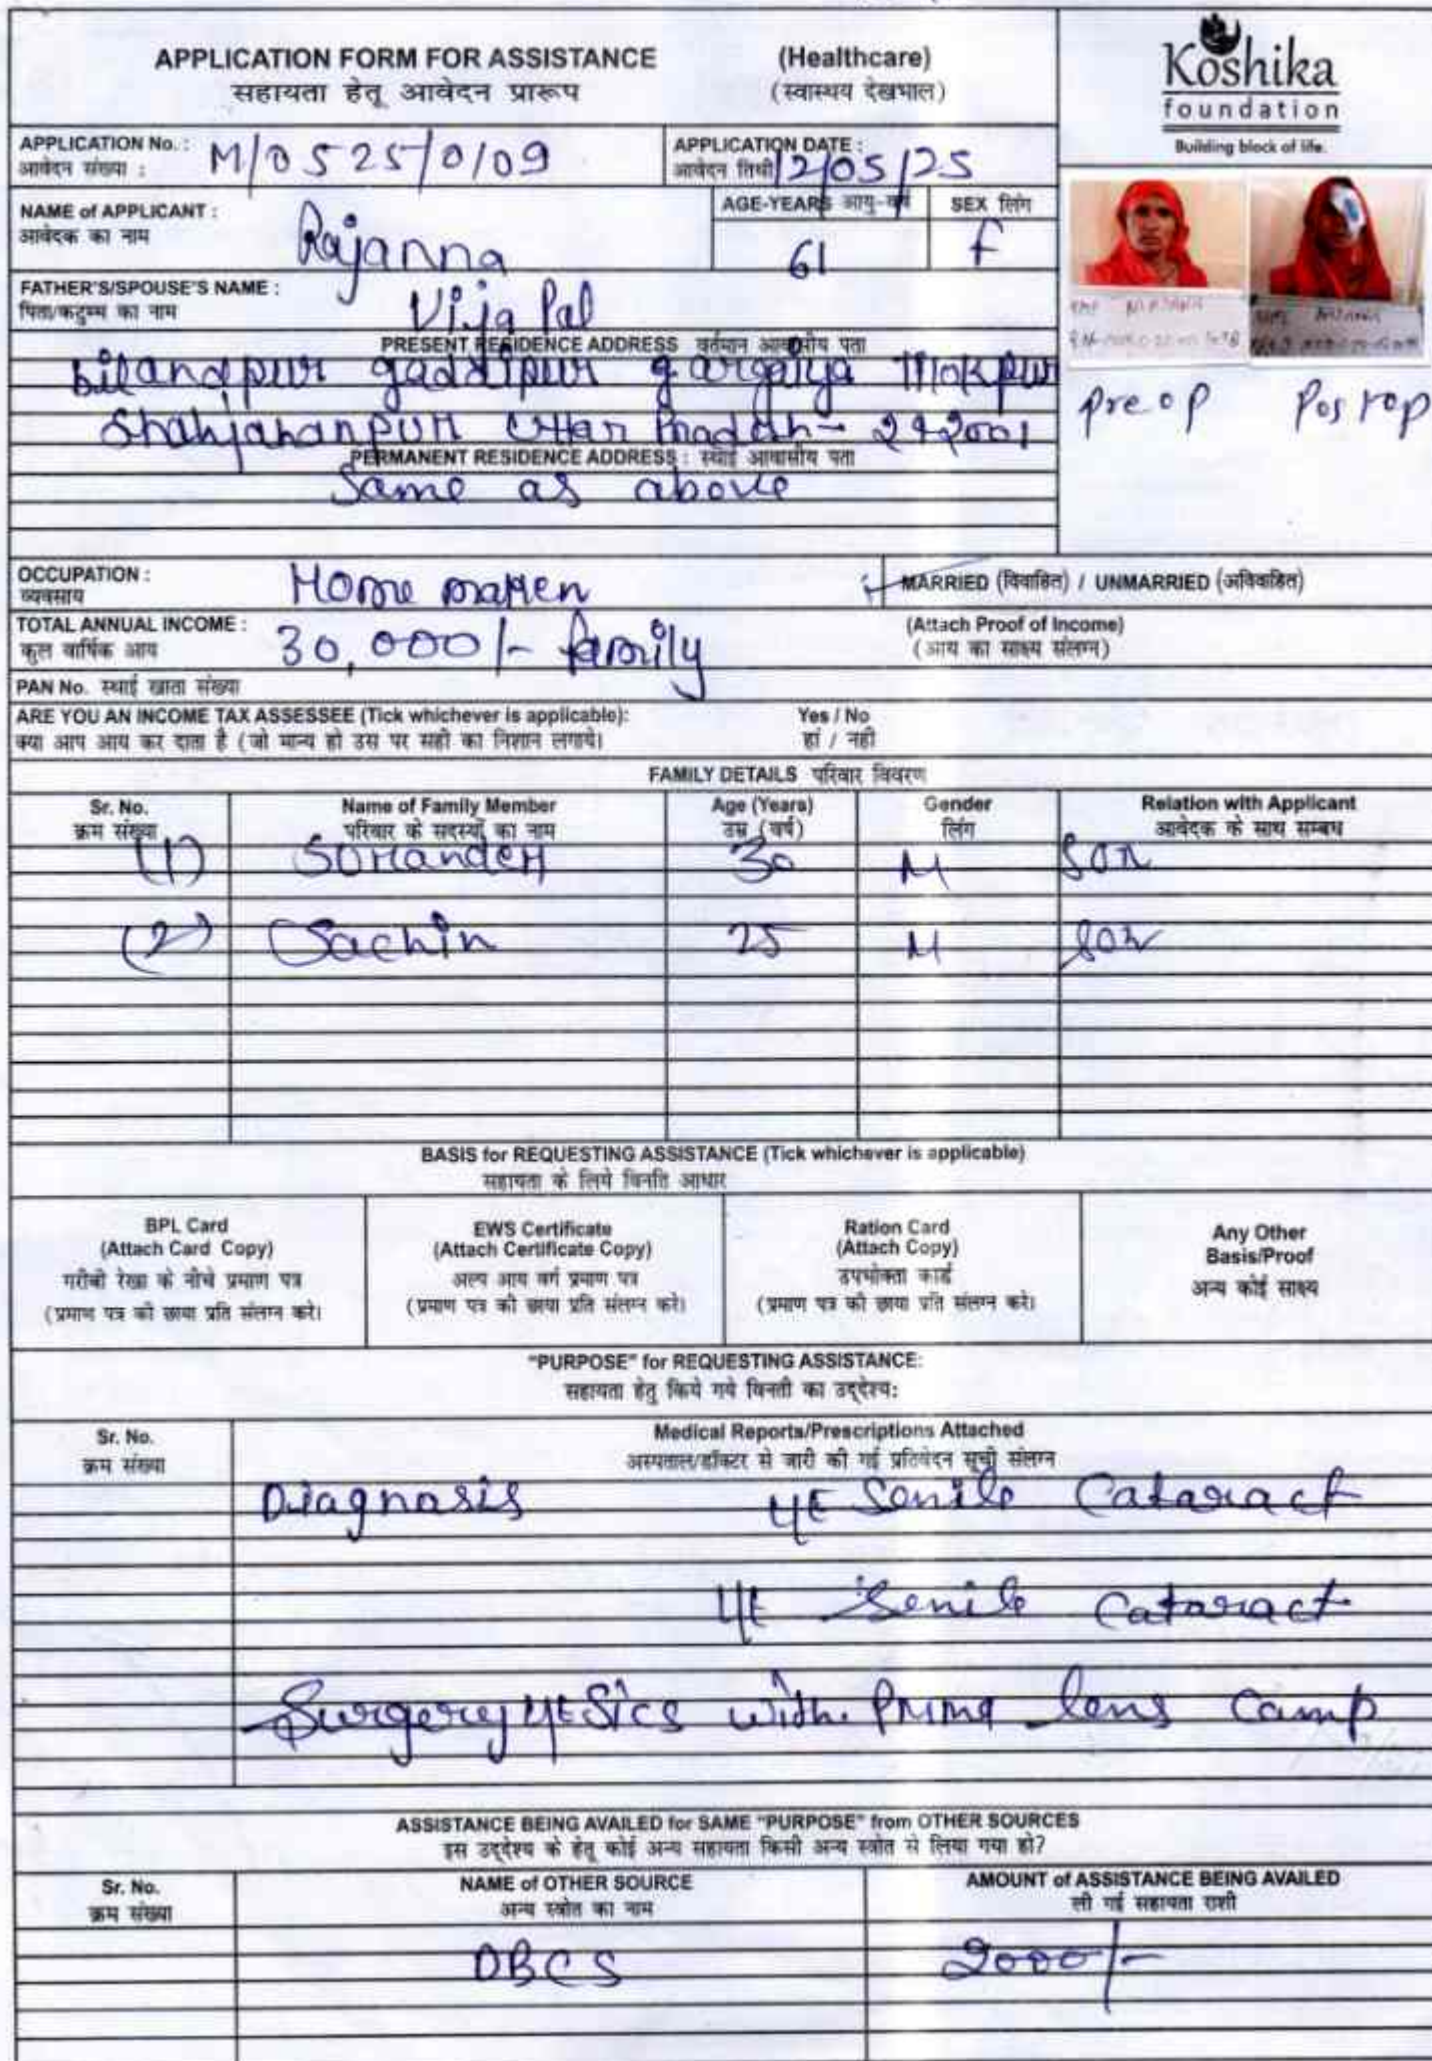 APPLICATION FORM FOR ASSISTANCE (Healthcare)
सहायता हेतू आवेदन प्रारूप (स्वास्थय देखभाल)
Koshika
foundation
Building block of life.
APPLICATION No. : M/0525/0/09
आवेदन संख्या :
APPLICATION DATE : 12/05/25
आवेदन तिथी
NAME of APPLICANT : Rajanna
आवेदक का नाम
AGE-YEARS आयु-वर्ष 61
SEX लिंग F
FATHER'S/SPOUSE'S NAME : Vija Pal
पिता/कटुम्म का नाम
PRESENT RESIDENCE ADDRESS वर्तमान आवासीय पता
Bilandpur gaddipur gargaiya
Shahjahanpur Uttar Pradesh - 242001
pre op Post op
PERMANENT RESIDENCE ADDRESS : स्थाई आवासीय पता
Same as above
OCCUPATION : Home maker
व्यवसाय
MARRIED (विवाहित) / UNMARRIED (अविवाहित)
TOTAL ANNUAL INCOME : 30,000/- family
कुल वार्षिक आय
(Attach Proof of Income)
(आय का साक्ष्य संलग्न)
PAN No. स्थाई खाता संख्या
ARE YOU AN INCOME TAX ASSESSEE (Tick whichever is applicable): Yes / No
क्या आप आय कर दाता है (जो मान्य हो उस पर सही का निशान लगाये। हां / नही
FAMILY DETAILS परिवार विवरण
Sr. No. Name of Family Member Age (Years) Gender Relation with Applicant
क्रम संख्या परिवार के सदस्यों का नाम उम्र (वर्ष) लिंग आवेदक के साथ सम्बध
(1) 30 M Son
(2) Sachin 25 M Son
BASIS for REQUESTING ASSISTANCE (Tick whichever is applicable)
सहायता के लिये विनति आधार
BPL Card
(Attach Card Copy)
गरीबी रेखा के नीचे प्रमाण पत्र
(प्रमाण पत्र की छाया प्रति संलग्न करे।
EWS Certificate
(Attach Certificate Copy)
अल्प आय वर्ग प्रमाण पत्र
(प्रमाण पत्र की छाया प्रति संलग्न करे।
Ration Card
(Attach Copy)
उपभोक्ता कार्ड
(प्रमाण पत्र की छाया प्रति संलग्न करे।
Any Other
Basis/Proof
अन्य कोई साक्ष्य
"PURPOSE" for REQUESTING ASSISTANCE:
सहायता हेतु किये गये विनती का उद्देश्य:
Sr. No. Medical Reports/Prescriptions Attached
क्रम संख्या अस्पताल/डॉक्टर से जारी की गई प्रतिवेदन सूची संलग्न
Diagnosis Senile Cataract
Senile Cataract
Surgery SICS with Prima lens Camp
ASSISTANCE BEING AVAILED for SAME "PURPOSE" from OTHER SOURCES
इस उद्देश्य के हेतू कोई अन्य सहायता किसी अन्य स्त्रोत से लिया गया हो?
Sr. No. NAME of OTHER SOURCE AMOUNT of ASSISTANCE BEING AVAILED
क्रम संख्या अन्य स्त्रोत का नाम ली गई सहायता राशी
DBCS 2000/-